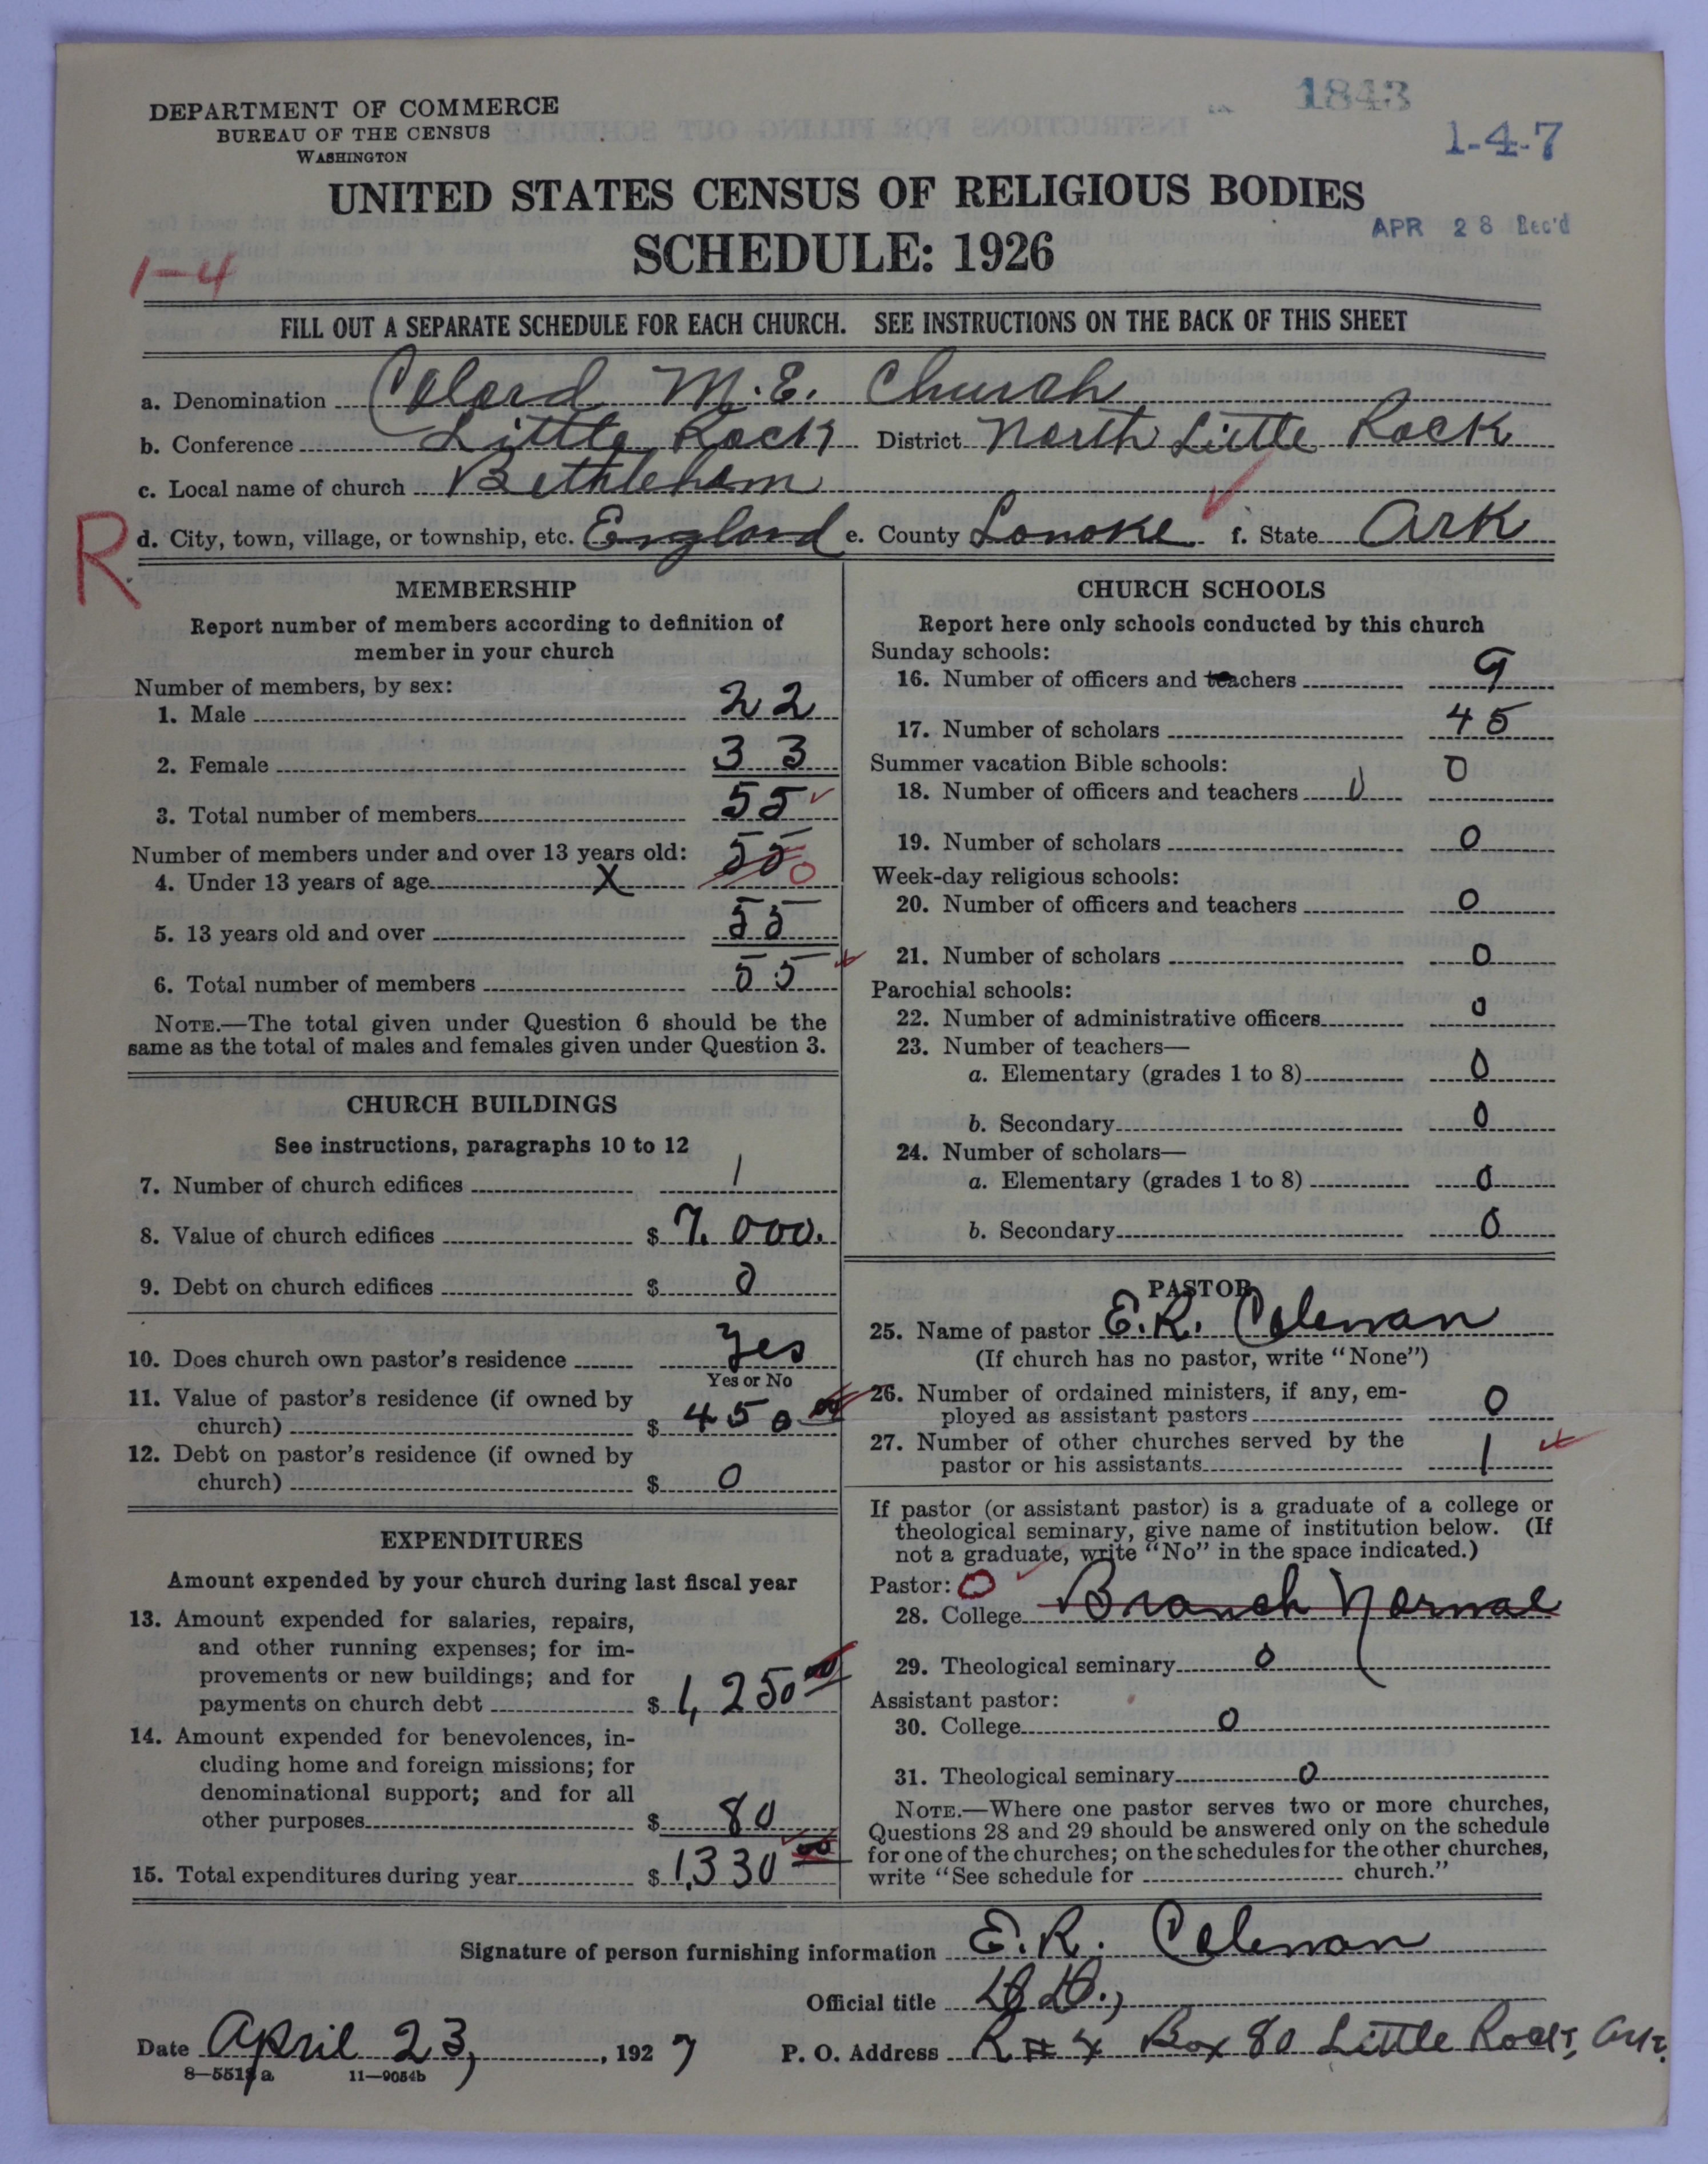 DEPARTMENT OF COMMERCE
BUREAU OF THE CENSUS
WASHINGTON
1843
1-4-7
UNITED STATES CENSUS OF RELIGIOUS BODIES
SCHEDULE: 1926
APR 28 Rec'd
1-4
FILL OUT A SEPARATE SCHEDULE FOR EACH CHURCH. SEE INSTRUCTIONS ON THE BACK OF THIS SHEET
a. Denomination Colord M.E. Church
b. Conference Little Rock District North Little Rock
c. Local name of church Bethleham
R
d. City, town, village, or township, etc. England e. County Lonoke f. State Ark
MEMBERSHIP
Report number of members according to definition of
member in your church
Number of members, by sex:
1. Male 22
2. Female 33
3. Total number of members 55
Number of members under and over 13 years old:
4. Under 13 years of age X 55 0
5. 13 years old and over 55
6. Total number of members 55
NOTE.—The total given under Question 6 should be the
same as the total of males and females given under Question 3.
CHURCH BUILDINGS
See instructions, paragraphs 10 to 12
7. Number of church edifices 1
8. Value of church edifices $ 7.000.
9. Debt on church edifices $ 0
10. Does church own pastor's residence Yes
Yes or No
11. Value of pastor's residence (if owned by
church) $ 450 00
12. Debt on pastor's residence (if owned by
church) $ 0
EXPENDITURES
Amount expended by your church during last fiscal year
13. Amount expended for salaries, repairs,
and other running expenses; for im-
provements or new buildings; and for
payments on church debt $ 1,250 00
14. Amount expended for benevolences, in-
cluding home and foreign missions; for
denominational support; and for all
other purposes $ 80
15. Total expenditures during year $ 1,330 00
CHURCH SCHOOLS
Report here only schools conducted by this church
Sunday schools:
16. Number of officers and teachers 9
17. Number of scholars 45
Summer vacation Bible schools: 0
18. Number of officers and teachers 0
19. Number of scholars 0
Week-day religious schools:
20. Number of officers and teachers 0
21. Number of scholars 0
Parochial schools:
22. Number of administrative officers 0
23. Number of teachers—
a. Elementary (grades 1 to 8) 0
b. Secondary 0
24. Number of scholars—
a. Elementary (grades 1 to 8) 0
b. Secondary 0
PASTOR
25. Name of pastor E.R. Coleman
(If church has no pastor, write "None")
26. Number of ordained ministers, if any, em-
ployed as assistant pastors 0
27. Number of other churches served by the
pastor or his assistants 1
If pastor (or assistant pastor) is a graduate of a college or
theological seminary, give name of institution below. (If
not a graduate, write "No" in the space indicated.)
Pastor: 0
28. College Branch Normal
29. Theological seminary 0
Assistant pastor:
30. College 0
31. Theological seminary 0
NOTE.—Where one pastor serves two or more churches,
Questions 28 and 29 should be answered only on the schedule
for one of the churches; on the schedules for the other churches,
write "See schedule for church."
Signature of person furnishing information E.R. Coleman
Official title D.D.,
Date April 23, 1927 P. O. Address R # 4 Box 80 Little Rock, Ark.
8—5518a 11—9054b